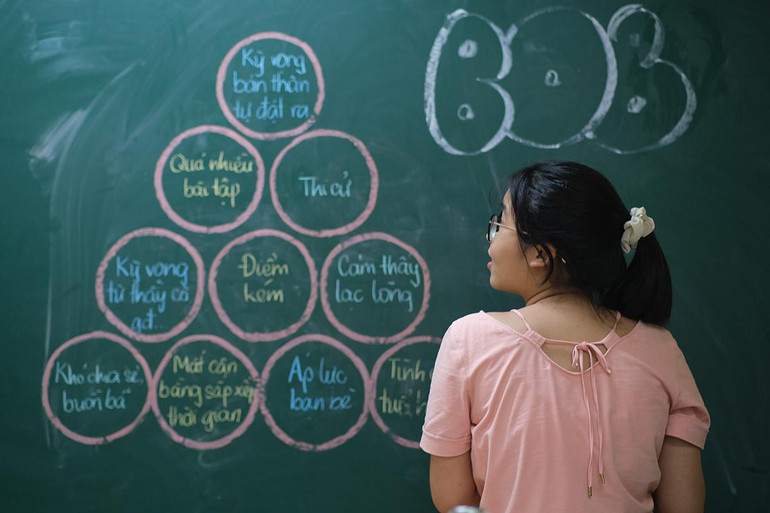 BOB
Kỳ vọng
bản thân
tự đặt ra
Quá nhiều
bài tập
Thi cử
Kỳ vọng
từ thầy cô
gđ...
Điểm
kém
Cảm thấy
lạc lõng
Khó chia sẻ,
buồn bã
Mất cân
bằng sắp xếp
thời gian
Áp lực
bạn bè